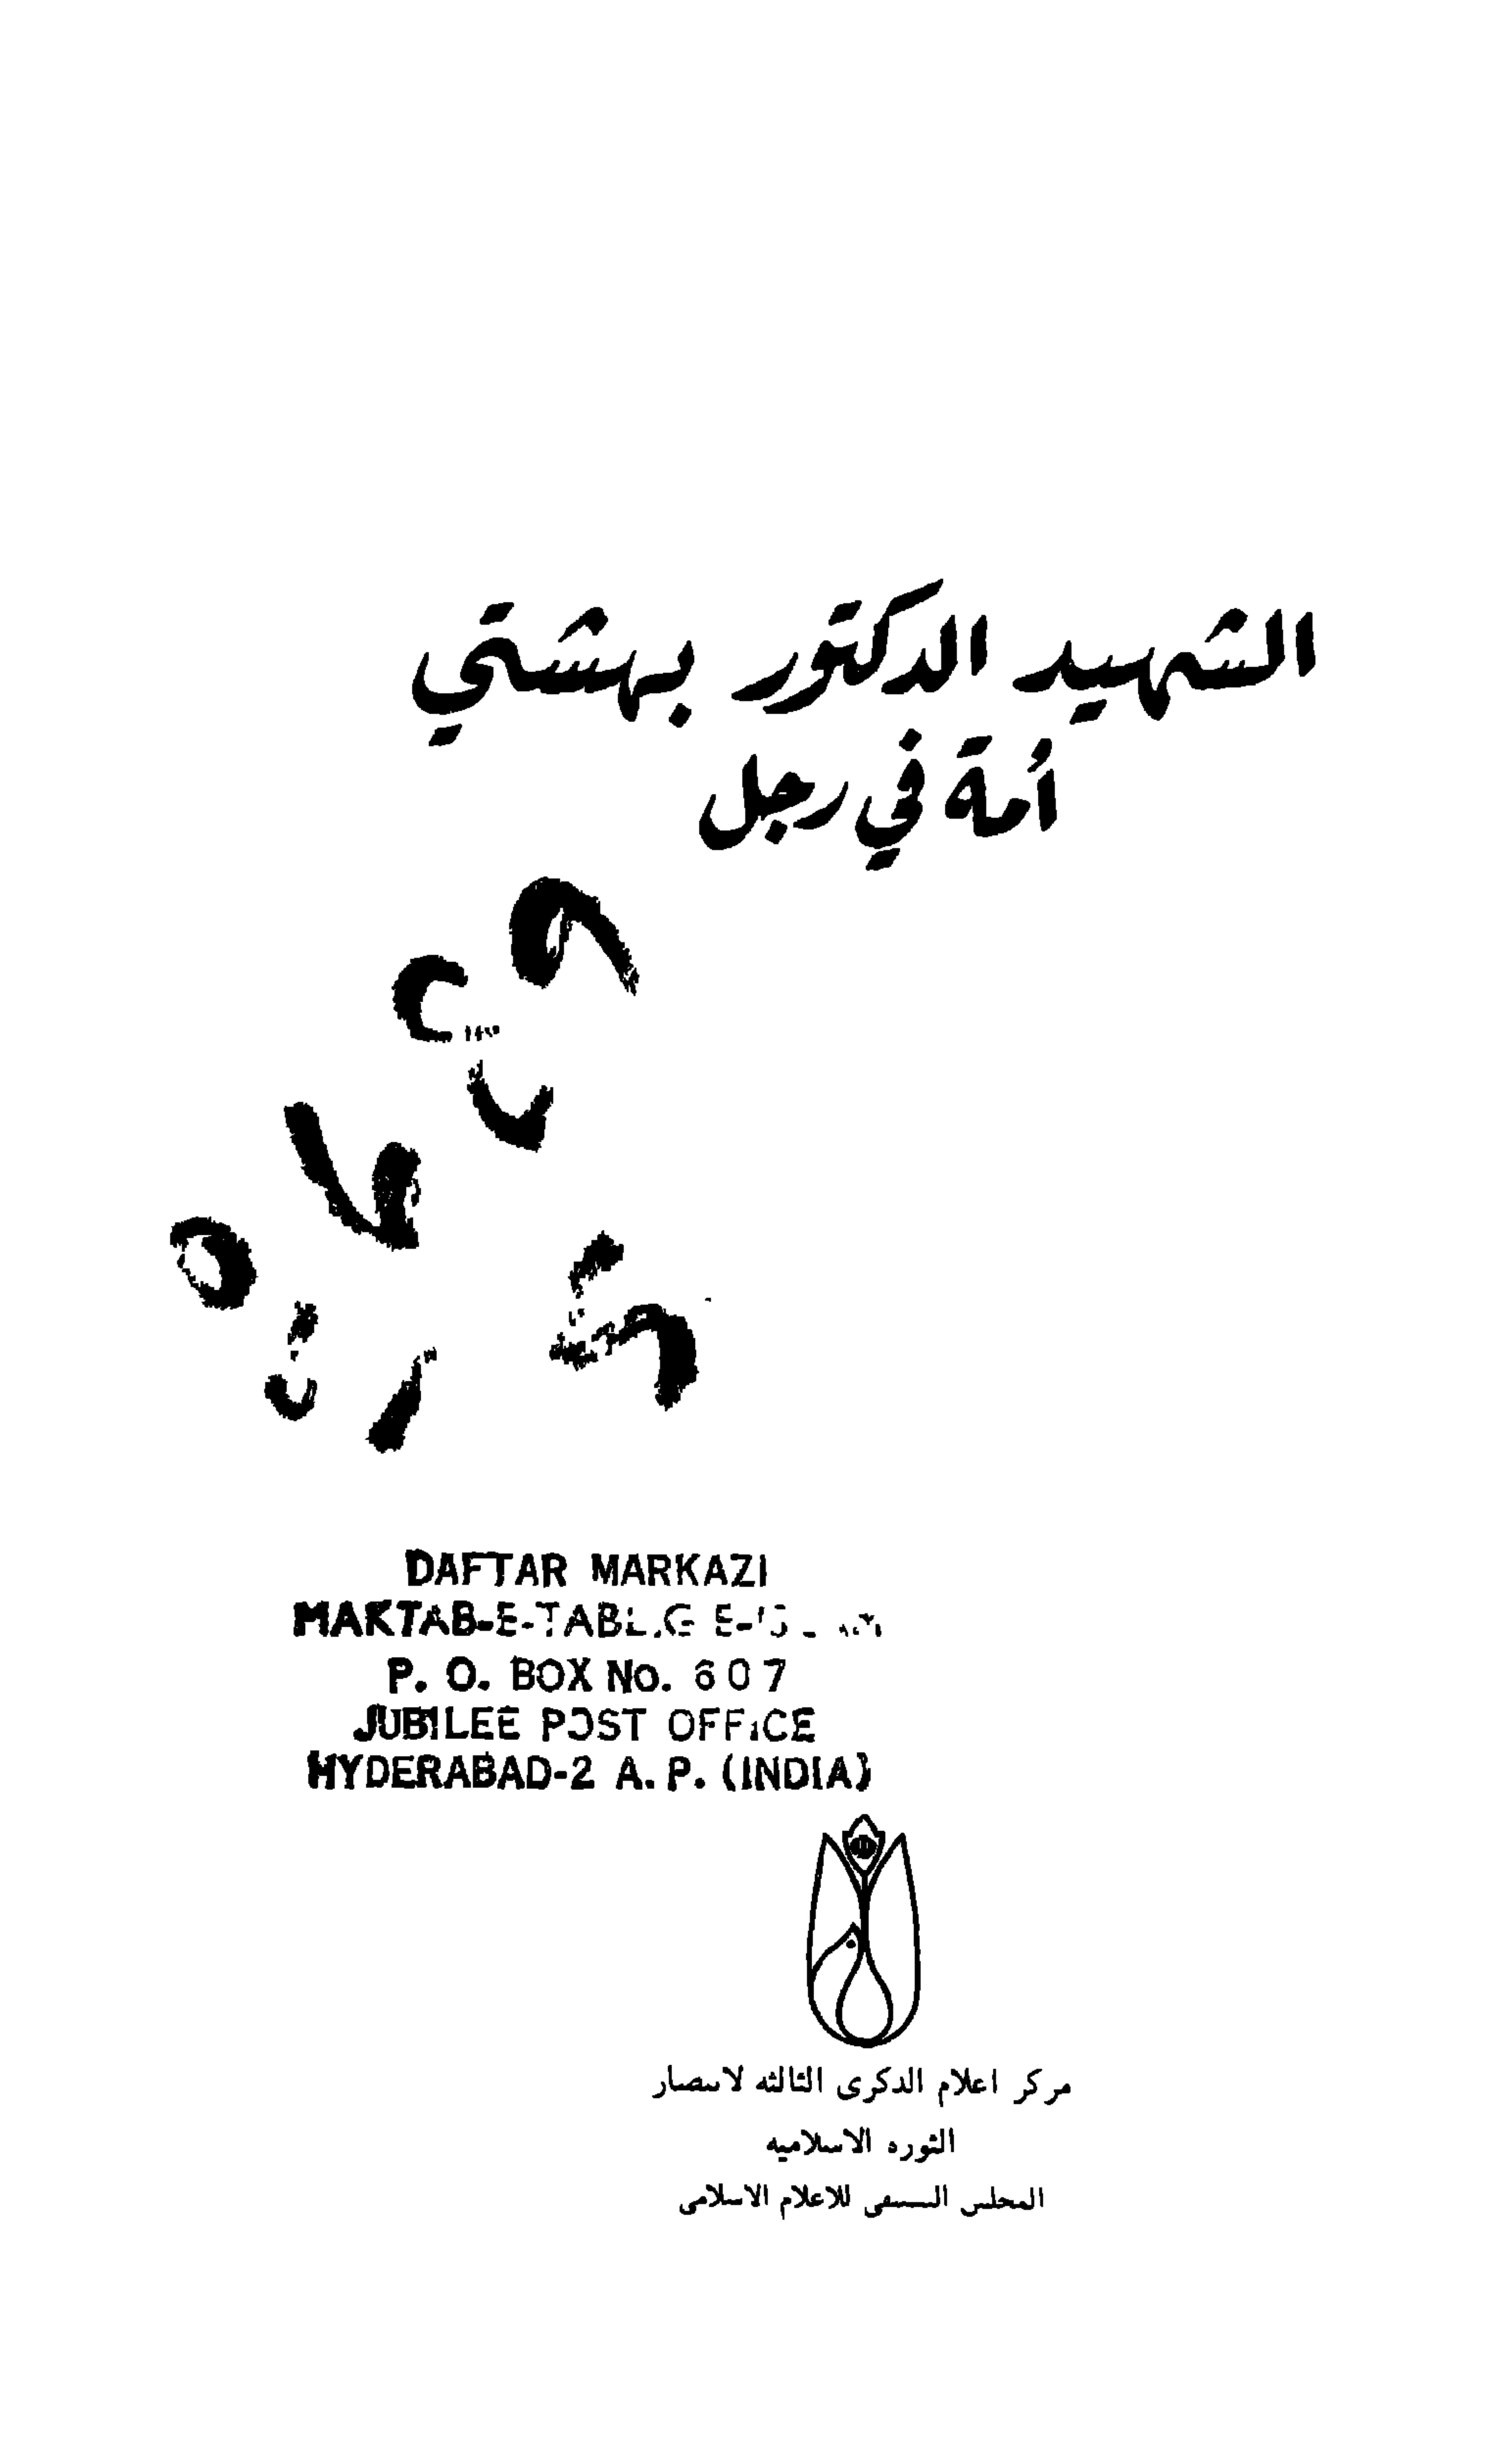 الشهيد الدكتور بهشتي
أمة في رجل
DAFTAR MARKAZI
MAKTAB-E-TABLIG E-ISLAMI
P. O. BOX No. 607
JUBILEE POST OFFICE
HYDERABAD-2 A. P. (INDIA)
مركز اعلام الذكرى الثالثه لانتصار
الثوره الاسلاميه
المجلس التنسيقي للاعلام الاسلامي